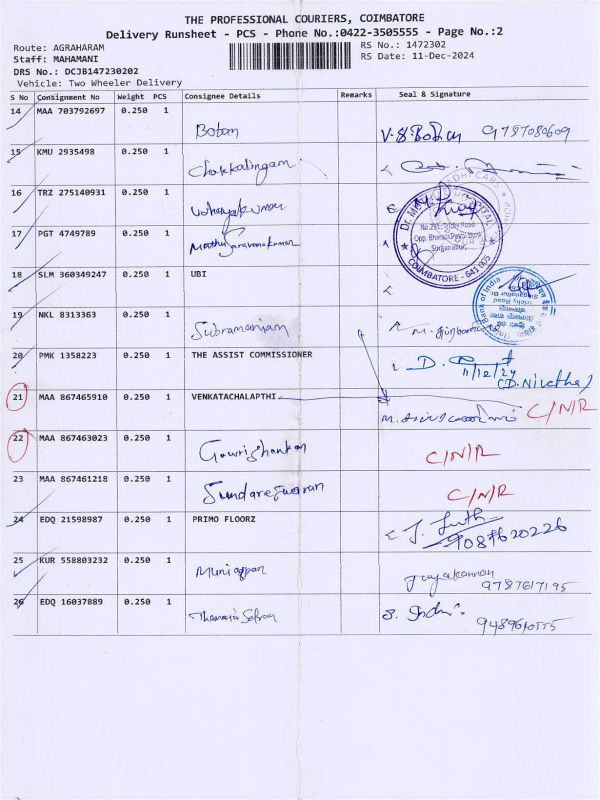 THE PROFESSIONAL COURIERS, COIMBATORE
Delivery Runsheet - PCS - Phone No.:0422-3505555 - Page No.:2
Route: AGRAHARAM RS No.: 1472302
Staff: MAHAMANI RS Date: 11-Dec-2024
DRS No.: DCJB147230202
Vehicle: Two Wheeler Delivery
S No Consignment No Weight PCS Consignee Details Remarks Seal & Signature
14 MAA 703792697 0.250 1
Boban V.S. Boban 9787080609
15 KMU 2935498 0.250 1
Chokkalingam
16 TRZ 275140931 0.250 1
Udhayakumar
17 PGT 4749789 0.250 1
Muthusaravanakumar
COIMBATORE - 641 005
18 SLM 360349247 0.250 1 UBI
Union Bank of India
19 NKL 8313363 0.250 1
Subramaniam
20 PMK 1358223 0.250 1 THE ASSIST COMMISSIONER
11/12/24
(D.Nivetha)
21 MAA 867465910 0.250 1 VENKATACHALAPTHI
C/N/R
22 MAA 867463023 0.250 1
Gowrishankar C/N/R
23 MAA 867461218 0.250 1
Sundareswaran C/N/R
24 EDQ 21598987 0.250 1 PRIMO FLOORZ
9087620226
25 KUR 558803232 0.250 1
Muniappan Jayakannan
9787617195
26 EDQ 16037889 0.250 1